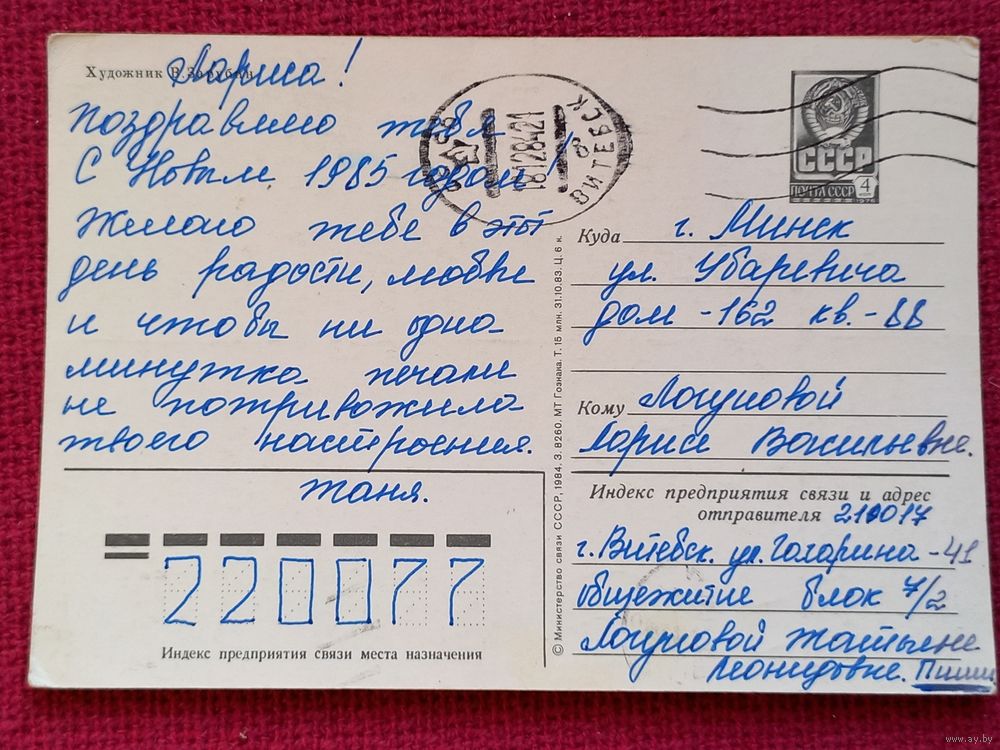 Художник В. Зарубин
Лариса!
Поздравляю тебя
С Новым 1985 годом!
Желаю тебе в этот
день радости, любви
и чтобы ни одна
минутка печали
не потривожила
твоего настроения.
Таня.
220077
Индекс предприятия связи места назначения
ВИТЕБСК
8
СССР
ПОЧТА СССР
4
1976
© Министерство связи СССР, 1984. З. 8260. МТ Гознака. Т. 15 млн. 31.10.83. Ц. 6 к.
Куда г. Минск
ул. Убаревича
дом - 162 кв. - 88
Кому Логуновой
Ларисе Васильевне.
Индекс предприятия связи и адрес
отправителя 210017
г. Витебск. ул. Гагарина - 41
общежитие блок 7/2
Логуновой Татьяне
Леонидовне. Пиши
www.ay.by